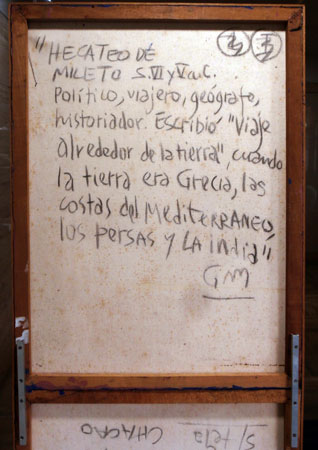 "HECATEO DE
MILETO S. VI y V a.C.
Político, viajero, geógrafo,
historiador. Escribió "Viaje
alrededor de la tierra", cuando
la tierra era Grecia, las
costas del MediTERRANEO,
los persas y LA india"
GM
S/tela
CHACAO